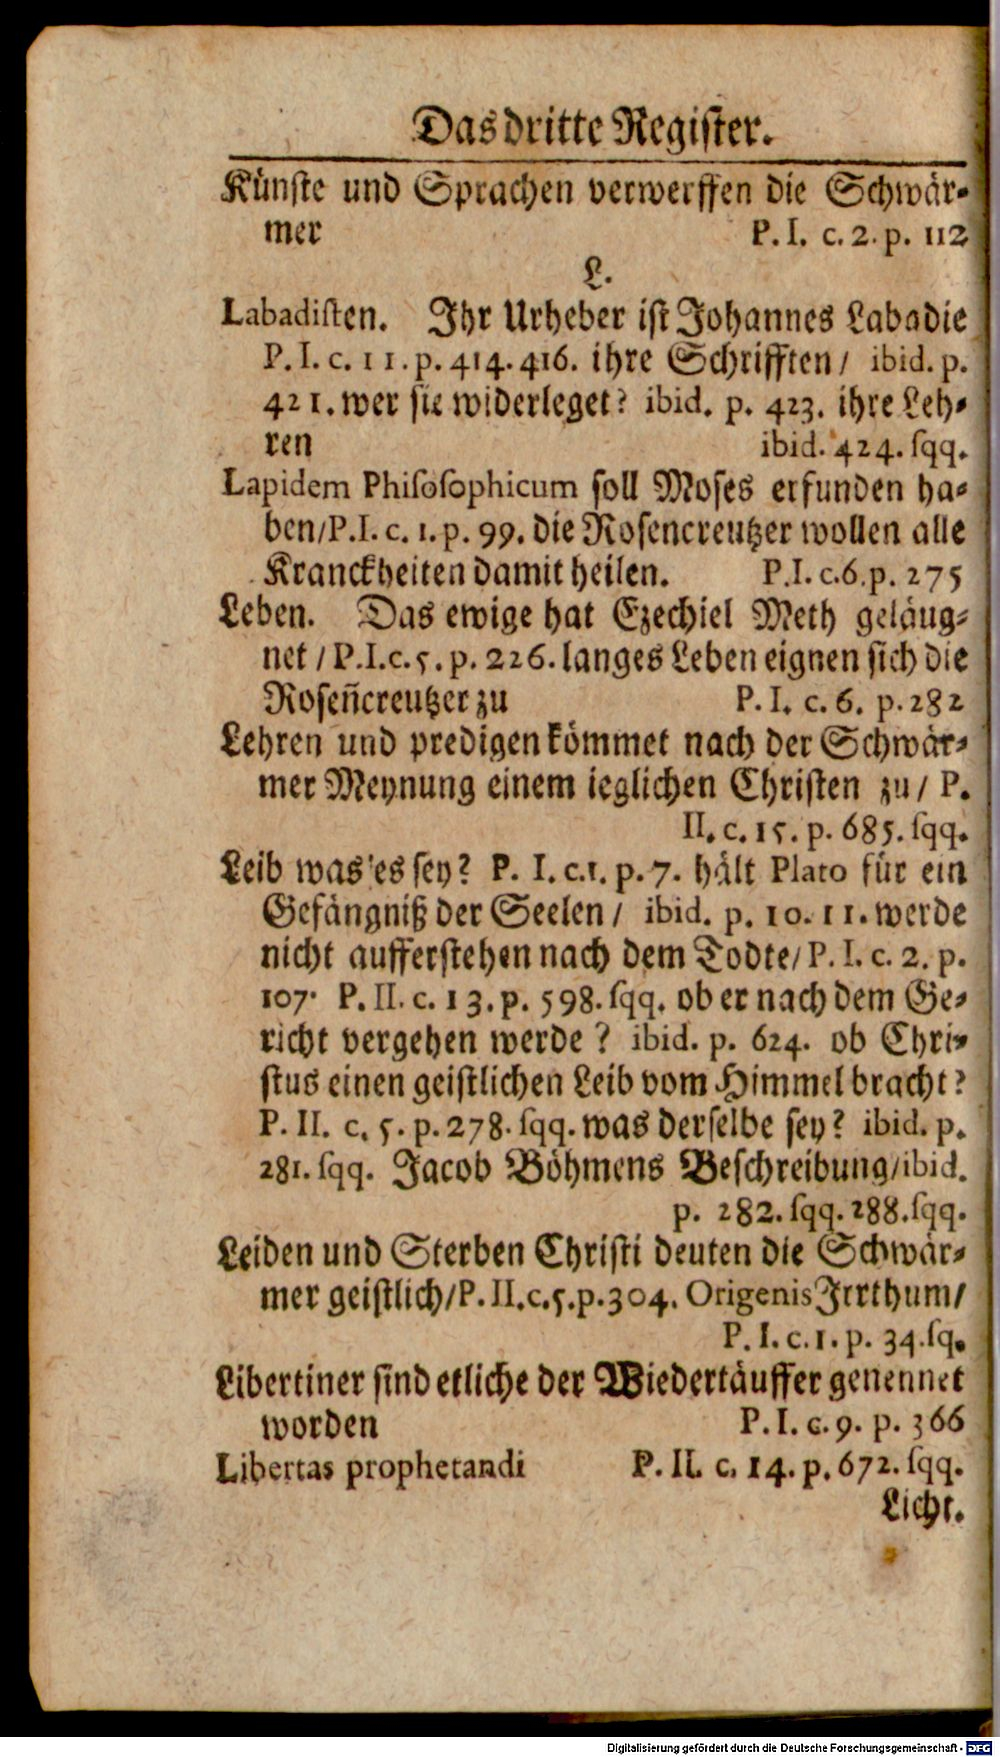 Das dritte Register.
Künste und Sprachen verwerffen die Schwär-
mer P. I. c. 2. p. 112
L.
Labadiſten. Ihr Urheber iſt Johannes Labadie
P. I. c. 11. p. 414. 416. ihre Schrifften / ibid. p.
421. wer ſie widerleget? ibid. p. 423. ihre Leh-
ren ibid. 424. ſqq.
Lapidem Phiſoſophicum ſoll Moſes erfunden ha-
ben/P. I. c. 1. p. 99. die Roſencreutzer wollen alle
Kranckheiten damit heilen. P. I. c. 6. p. 275
Leben. Das ewige hat Ezechiel Meth geläug-
net / P. I. c. 5. p. 226. langes Leben eignen ſich die
Roſen̄creutzer zu P. I. c. 6. p. 282
Lehren und predigen kömmet nach der Schwär-
mer Meynung einem ieglichen Chriſten zu / P.
II. c. 15. p. 685. ſqq.
Leib was es ſey? P. I. c. 1. p. 7. hält Plato für ein
Gefängniß der Seelen / ibid. p. 10. 11. werde
nicht aufferſtehen nach dem Todte/ P. I. c. 2. p.
107. P. II. c. 13. p. 598. ſqq. ob er nach dem Ge-
richt vergehen werde ? ibid. p. 624. ob Chri-
ſtus einen geiſtlichen Leib vom Himmel bracht?
P. II. c. 5. p. 278. ſqq. was derſelbe ſey? ibid. p.
281. ſqq. Jacob Böhmens Beſchreibung/ibid.
p. 282. ſqq. 288. ſqq.
Leiden und Sterben Chriſti deuten die Schwär-
mer geiſtlich/P. II. c. 5. p. 304. Origenis Irrthum/
P. I. c. 1. p. 34. ſq.
Libertiner ſind etliche der Wiedertäuffer genennet
worden P. I. c. 9. p. 366
Libertas prophetandi P. II. c. 14. p. 672. ſqq.
Licht.
Digitalisierung gefördert durch die Deutsche Forschungsgemeinschaft - DFG